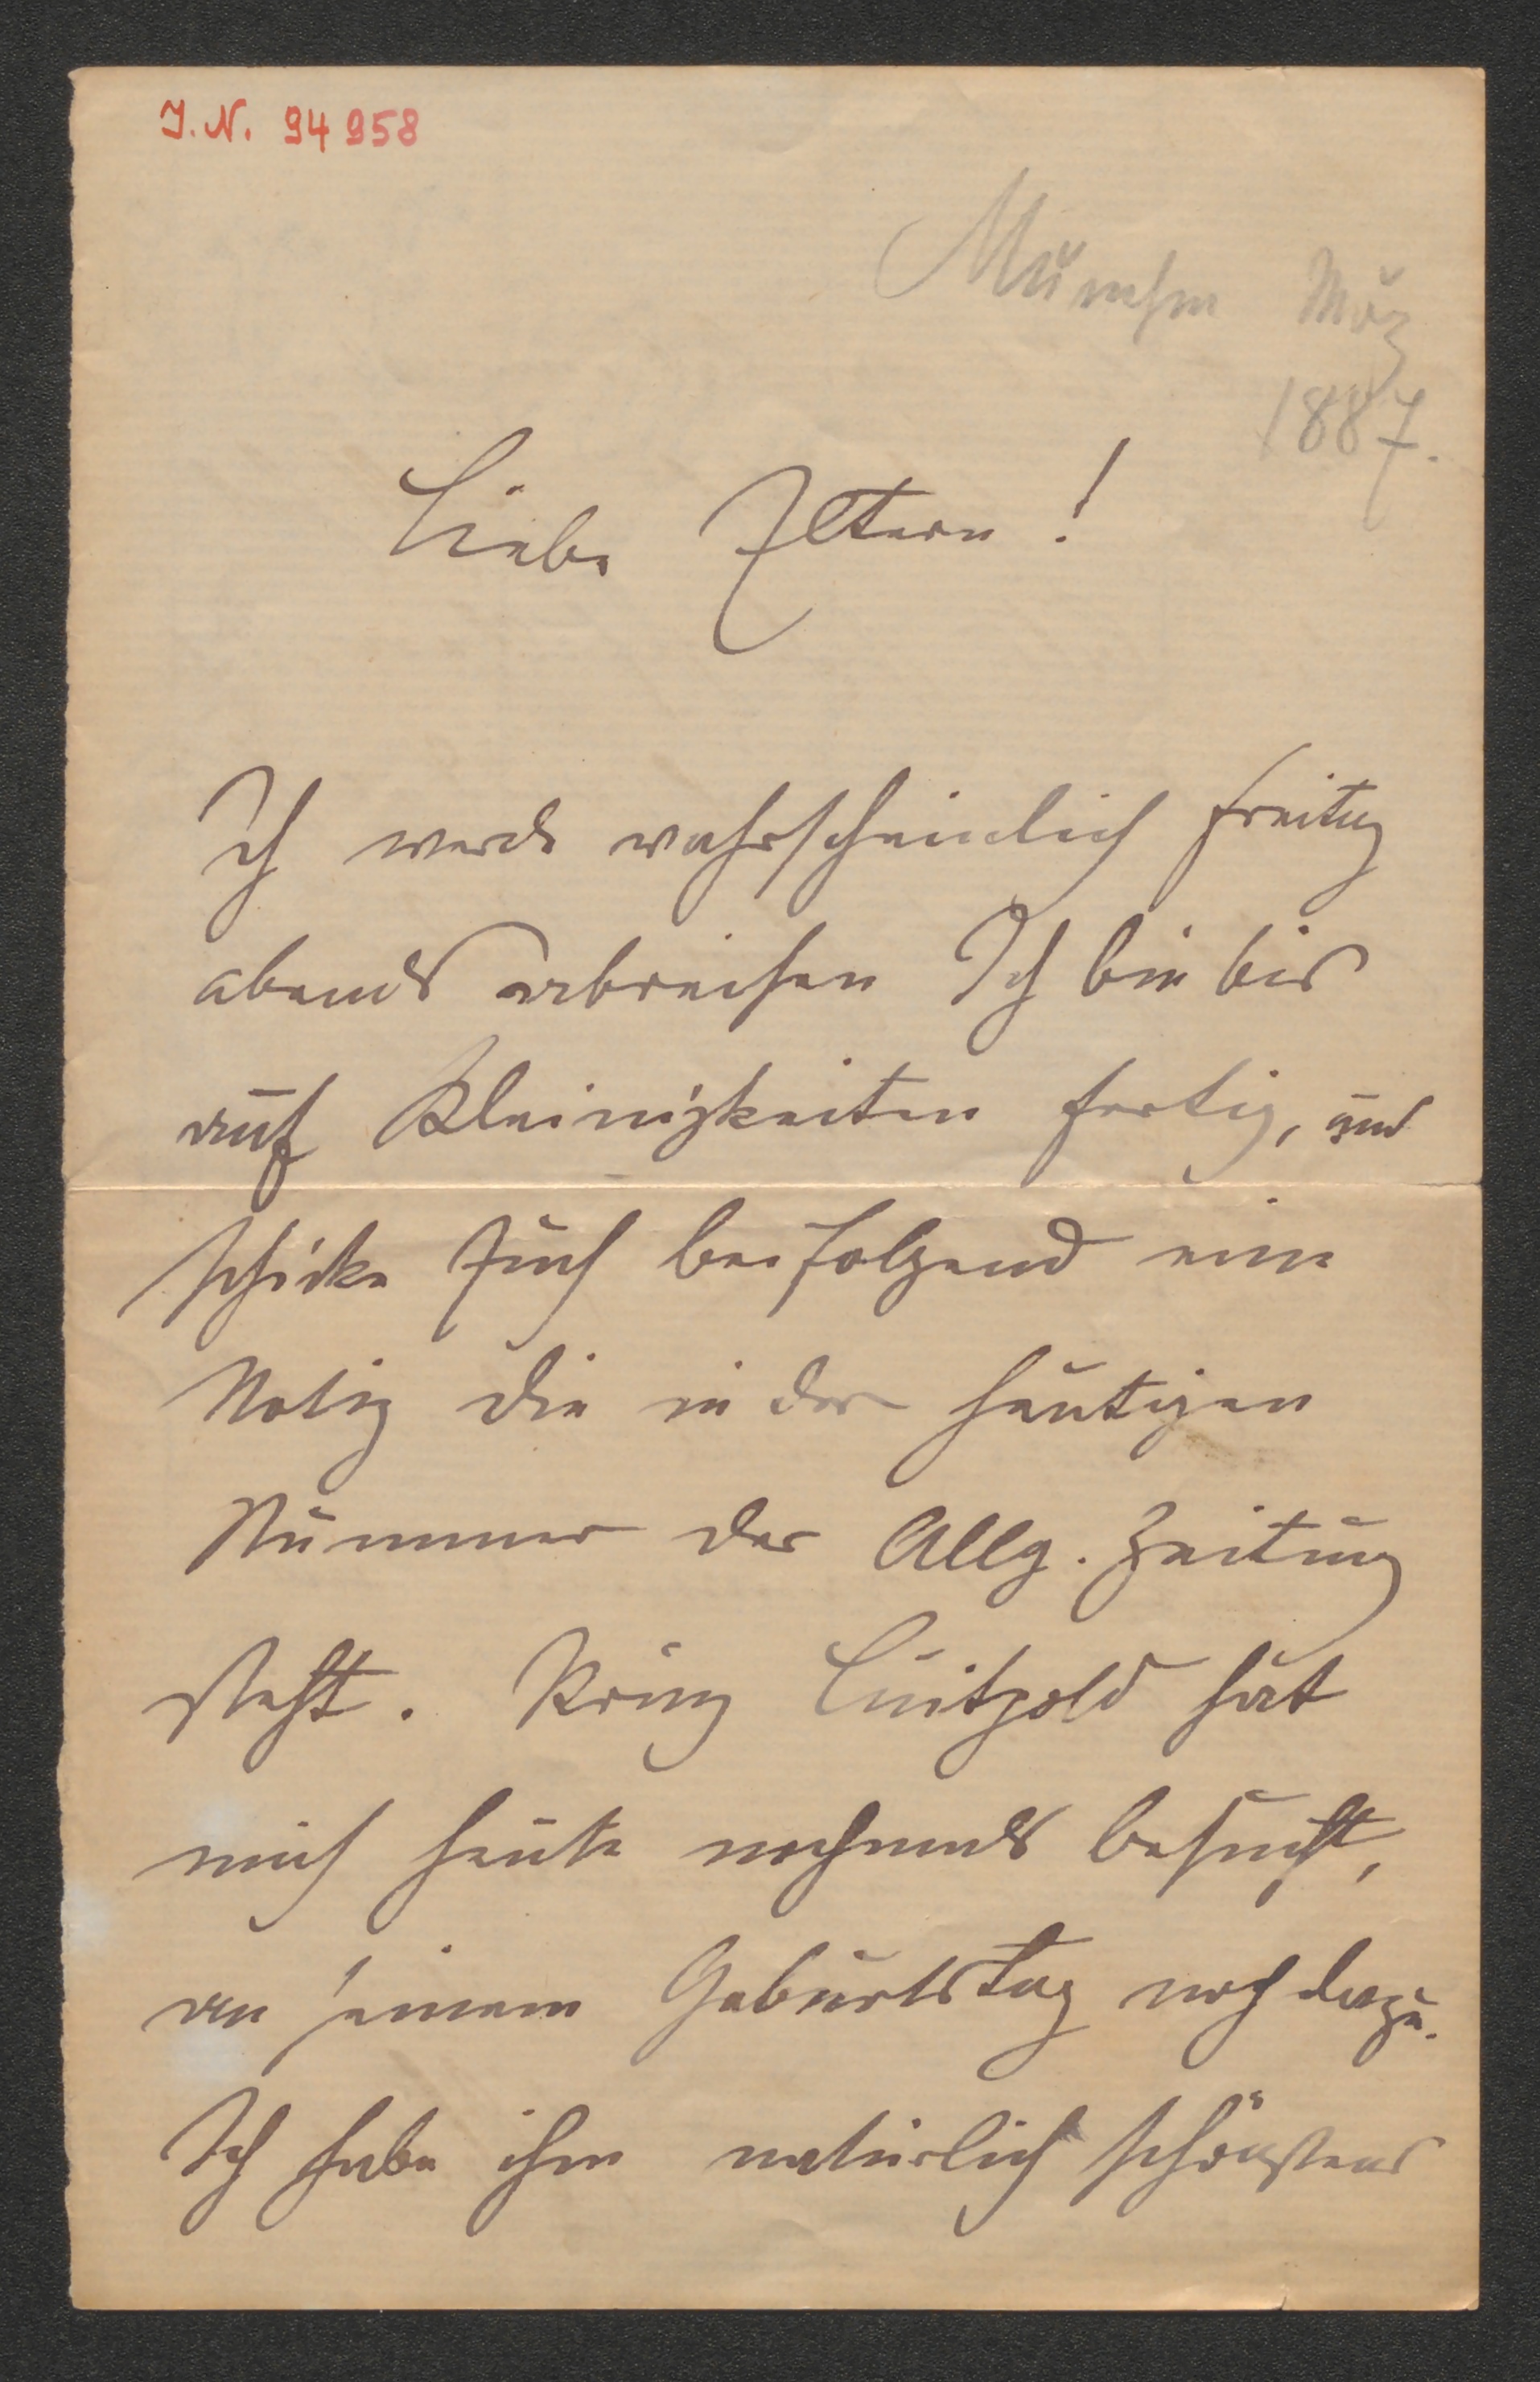 I. N. 94 958
München März
1887.
Liebe Eltern!
Ich werde wahrscheinlich Freitag
abends abreisen Ich bin bis
auf Kleinigkeiten fertig, und
schicke Euch beifolgend eine
Notiz die in der heutigen
Nummer der Allg. Zeitung
steht. Prinz Luitpold hat
mich heute nochmals besucht,
an seinem Geburtstag noch dazu.
Ich habe ihm natürlich schönstens